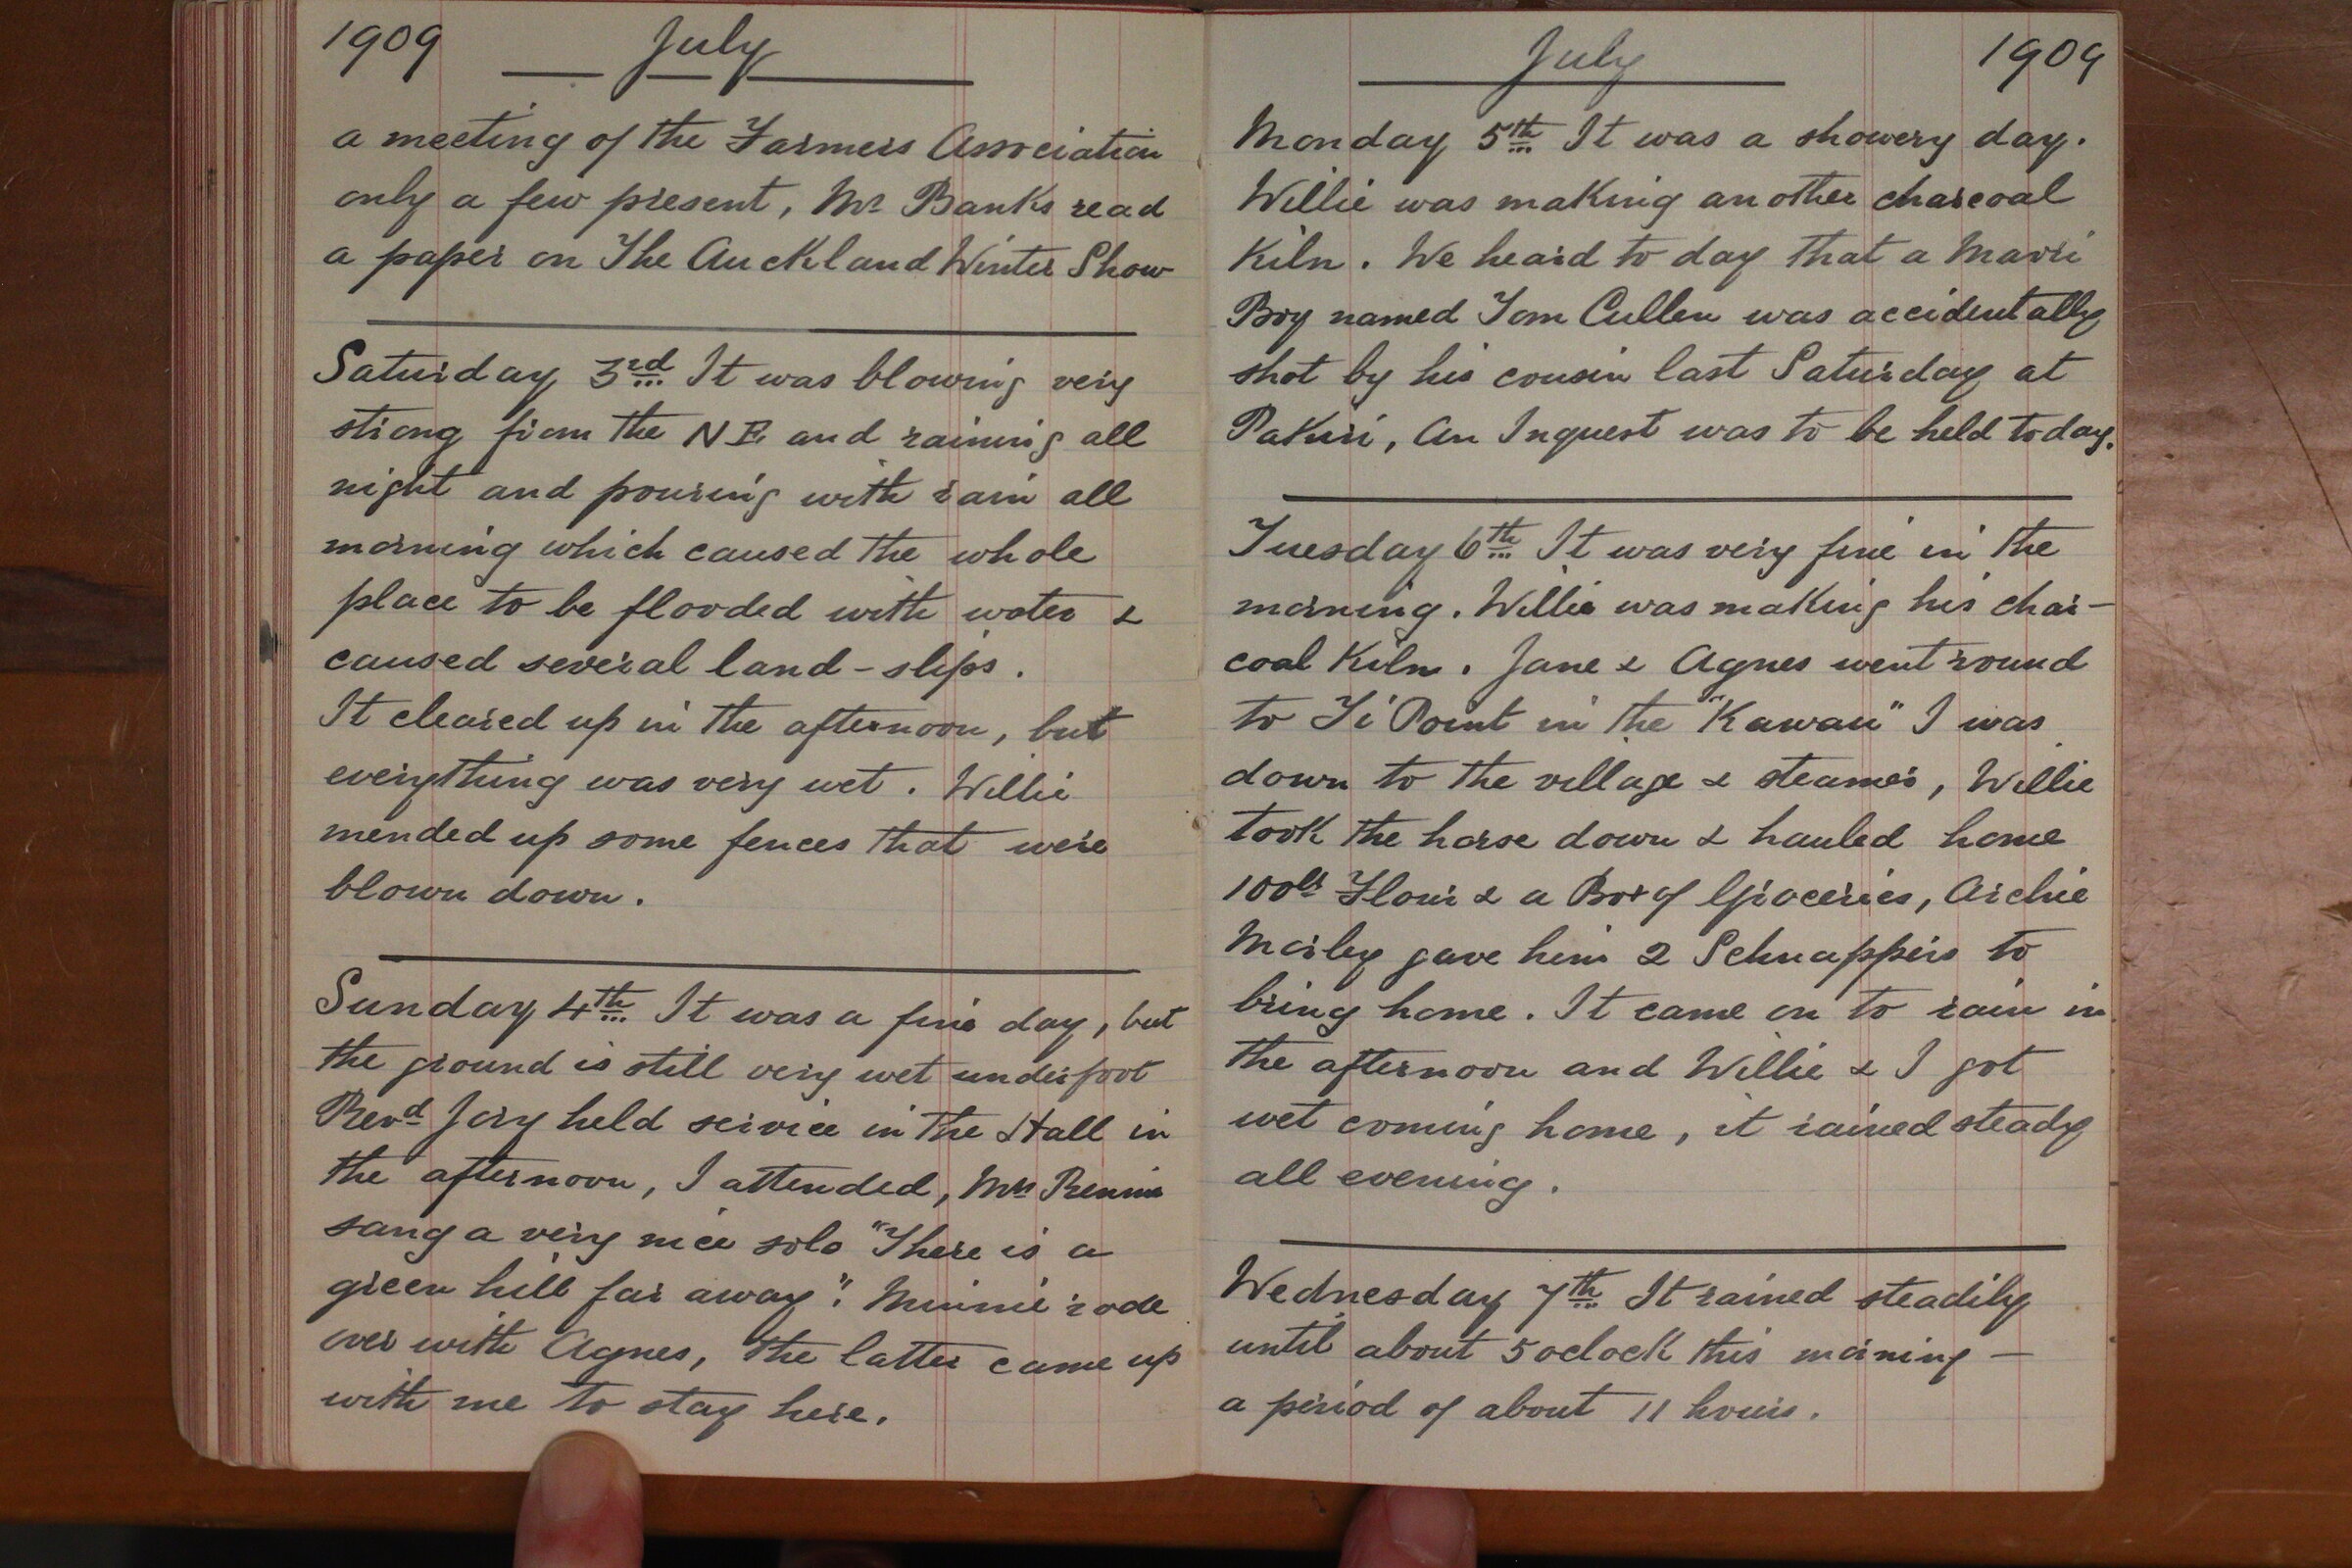 1909 July
a meeting of the Farmers Association
only a few present, Mr Banks read
a paper on The Auckland Winter Show
Saturday 3rd It was blowing very
strong from the NE and raining all
night and pouring with rain all
morning which caused the whole
place to be flooded with water &
caused several land-slips.
It cleared up in the afternoon, but
everything was very wet. Willie
mended up some fences that were
blown down.
Sunday 4th It was a fine day, but
the ground is still very wet underfoot
Revd Jory held service in the Hall in
the afternoon, I attended, Mrs Rennie
sang a very nice solo "There is a
green hill far away". Minnie rode
over with Agnes, the latter came up
with me to stay here.
July 1909
Monday 5th It was a showery day.
Willie was making another charcoal
Kiln. We heard to day that a Maori
Boy named Tom Cullen was accidentally
shot by his cousin last Saturday at
Pakiri, An Inquest was to be held today.
Tuesday 6th It was very fine in the
morning. Willie was making his char-
coal Kiln. Jane & Agnes went round
to Ti Point in the "Kawau" I was
down to the village & steamer, Willie
took the horse down & hauled home
100lb Flour & a Box of Groceries, Archie
Morley gave him 2 Schnappers to
bring home. It came on to rain in
the afternoon and Willie & I got
wet coming home, it rained steady
all evening.
Wednesday 7th It rained steadily
until about 5 oclock this morning —
a period of about 11 hours.